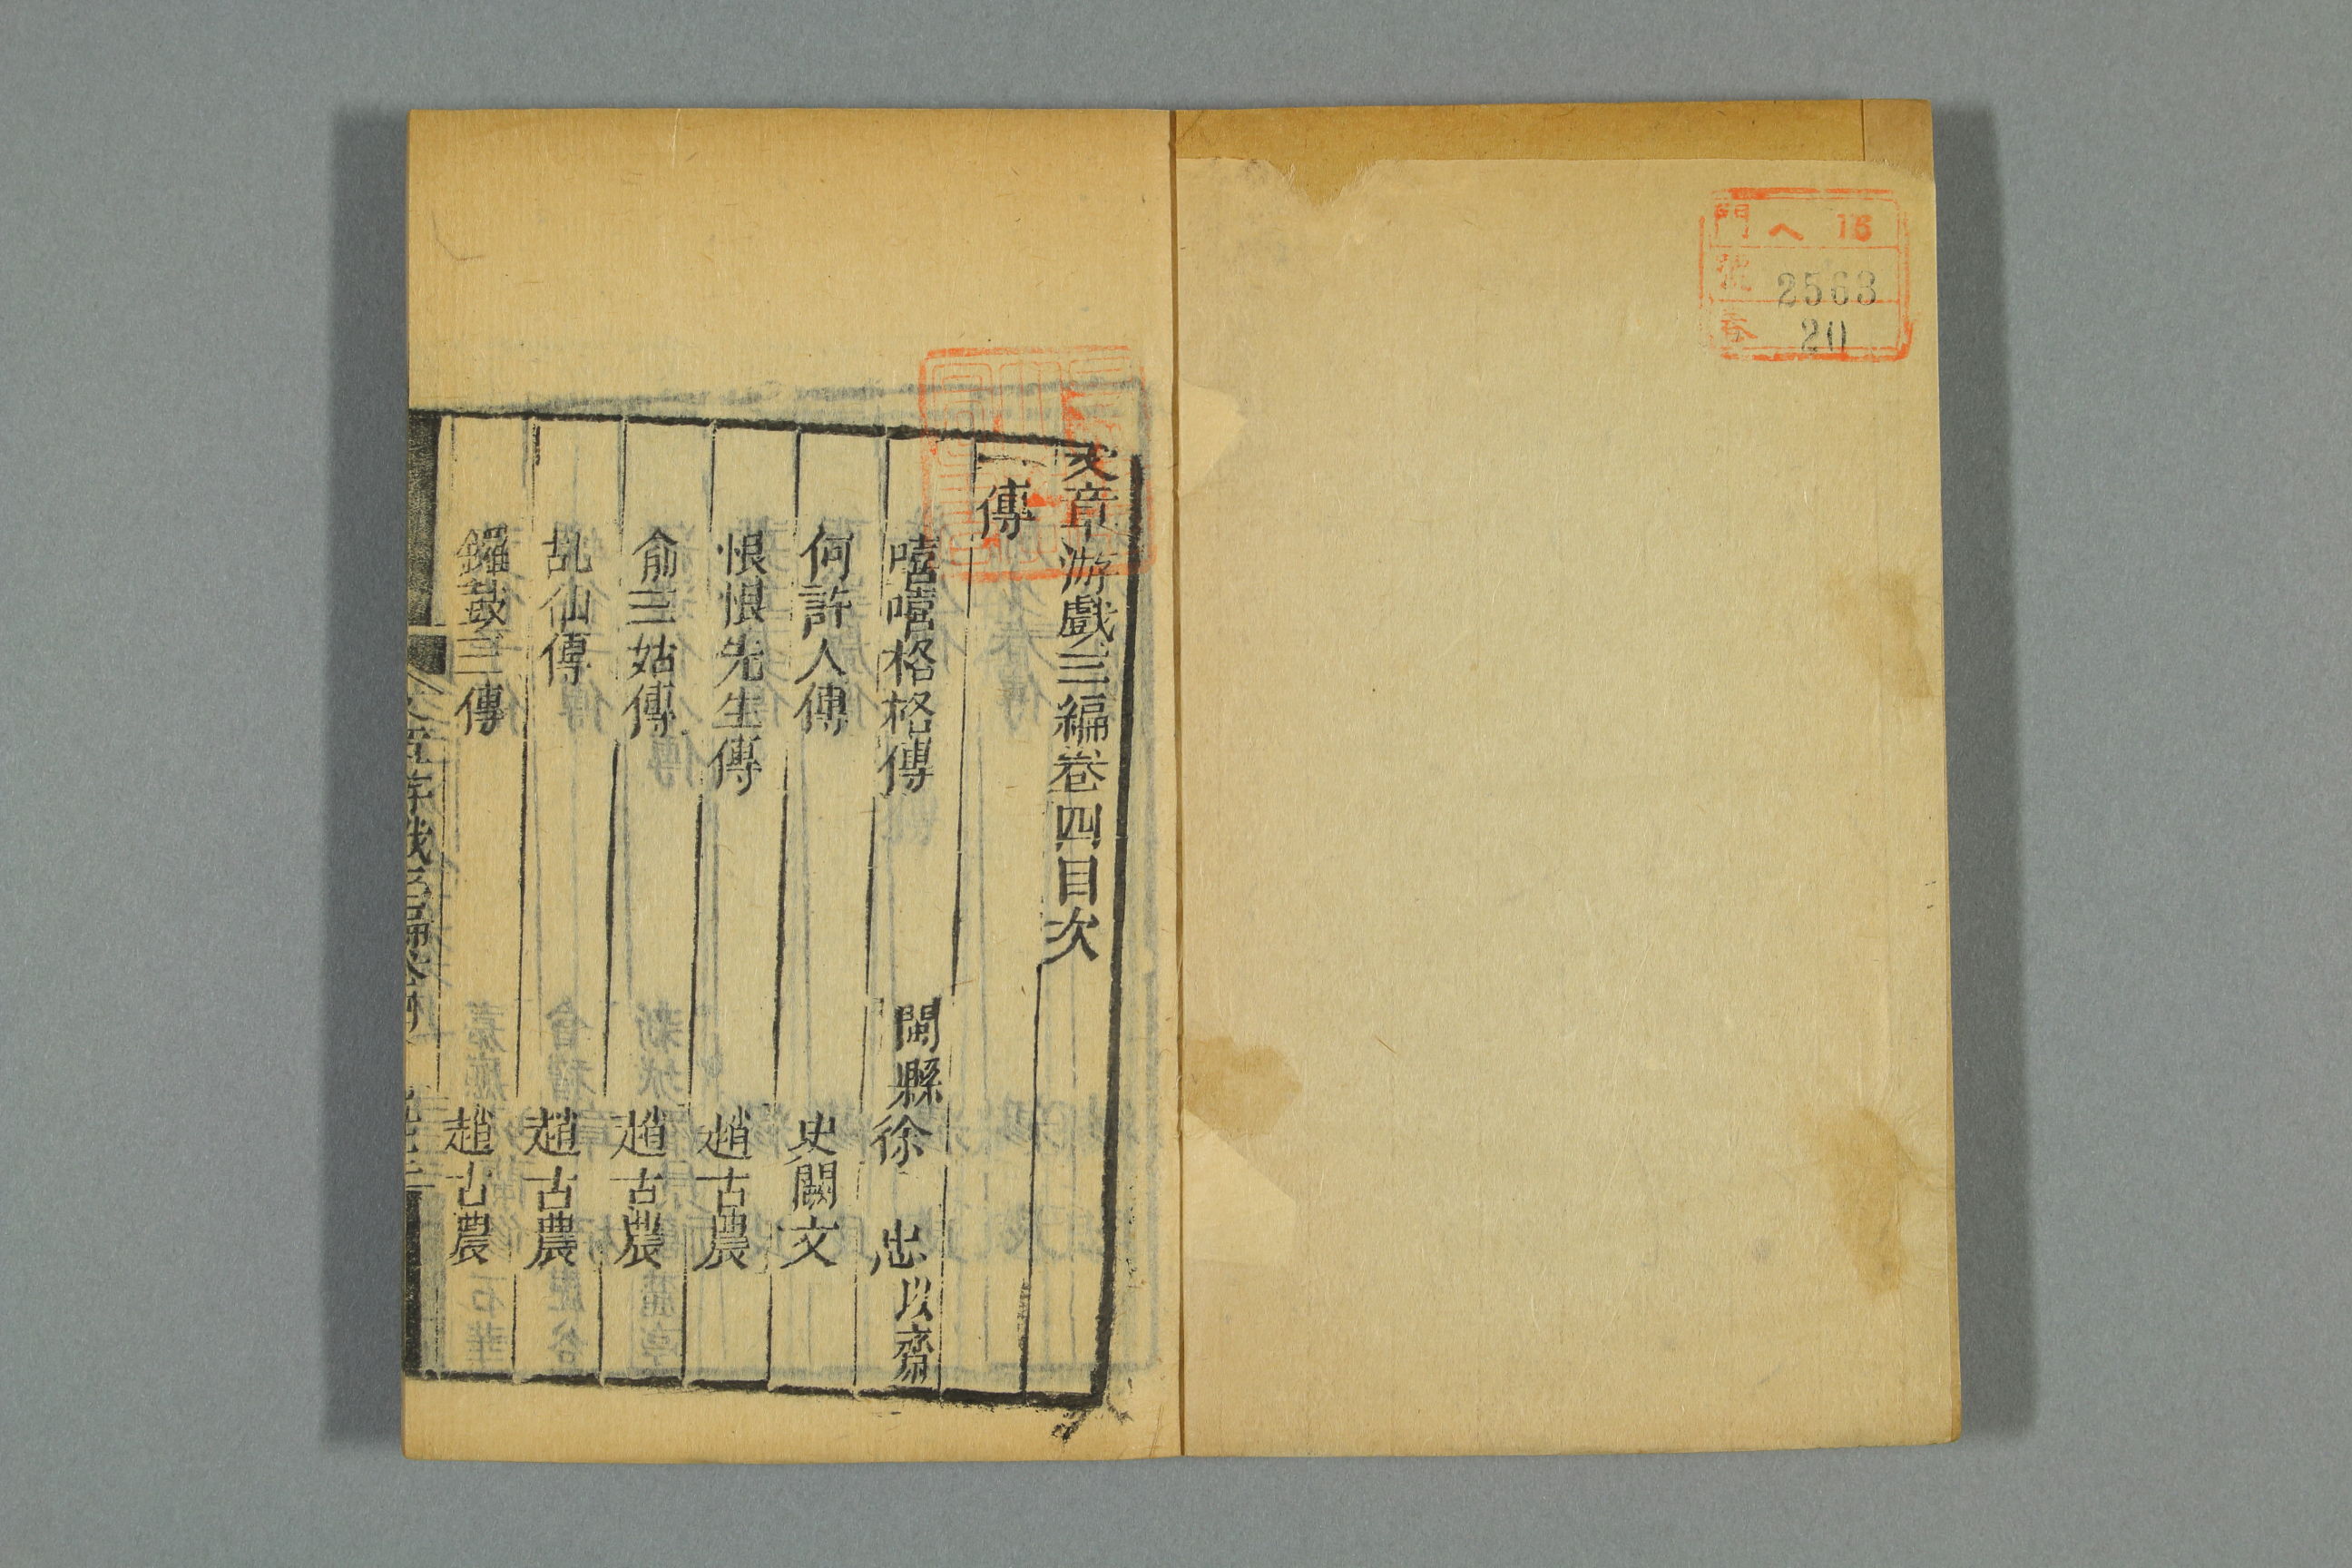 門 ヘ 16
號 2563
卷 20
文章游戲三編卷四目次
一傳
嘻嘻格格傳 閩縣徐 忠以齋
何許人傳 史闕文
恨恨先生傳 趙古農
俞三姑傳 趙古農
乩仙傳 趙古農
鑼鼓三傳 趙古農